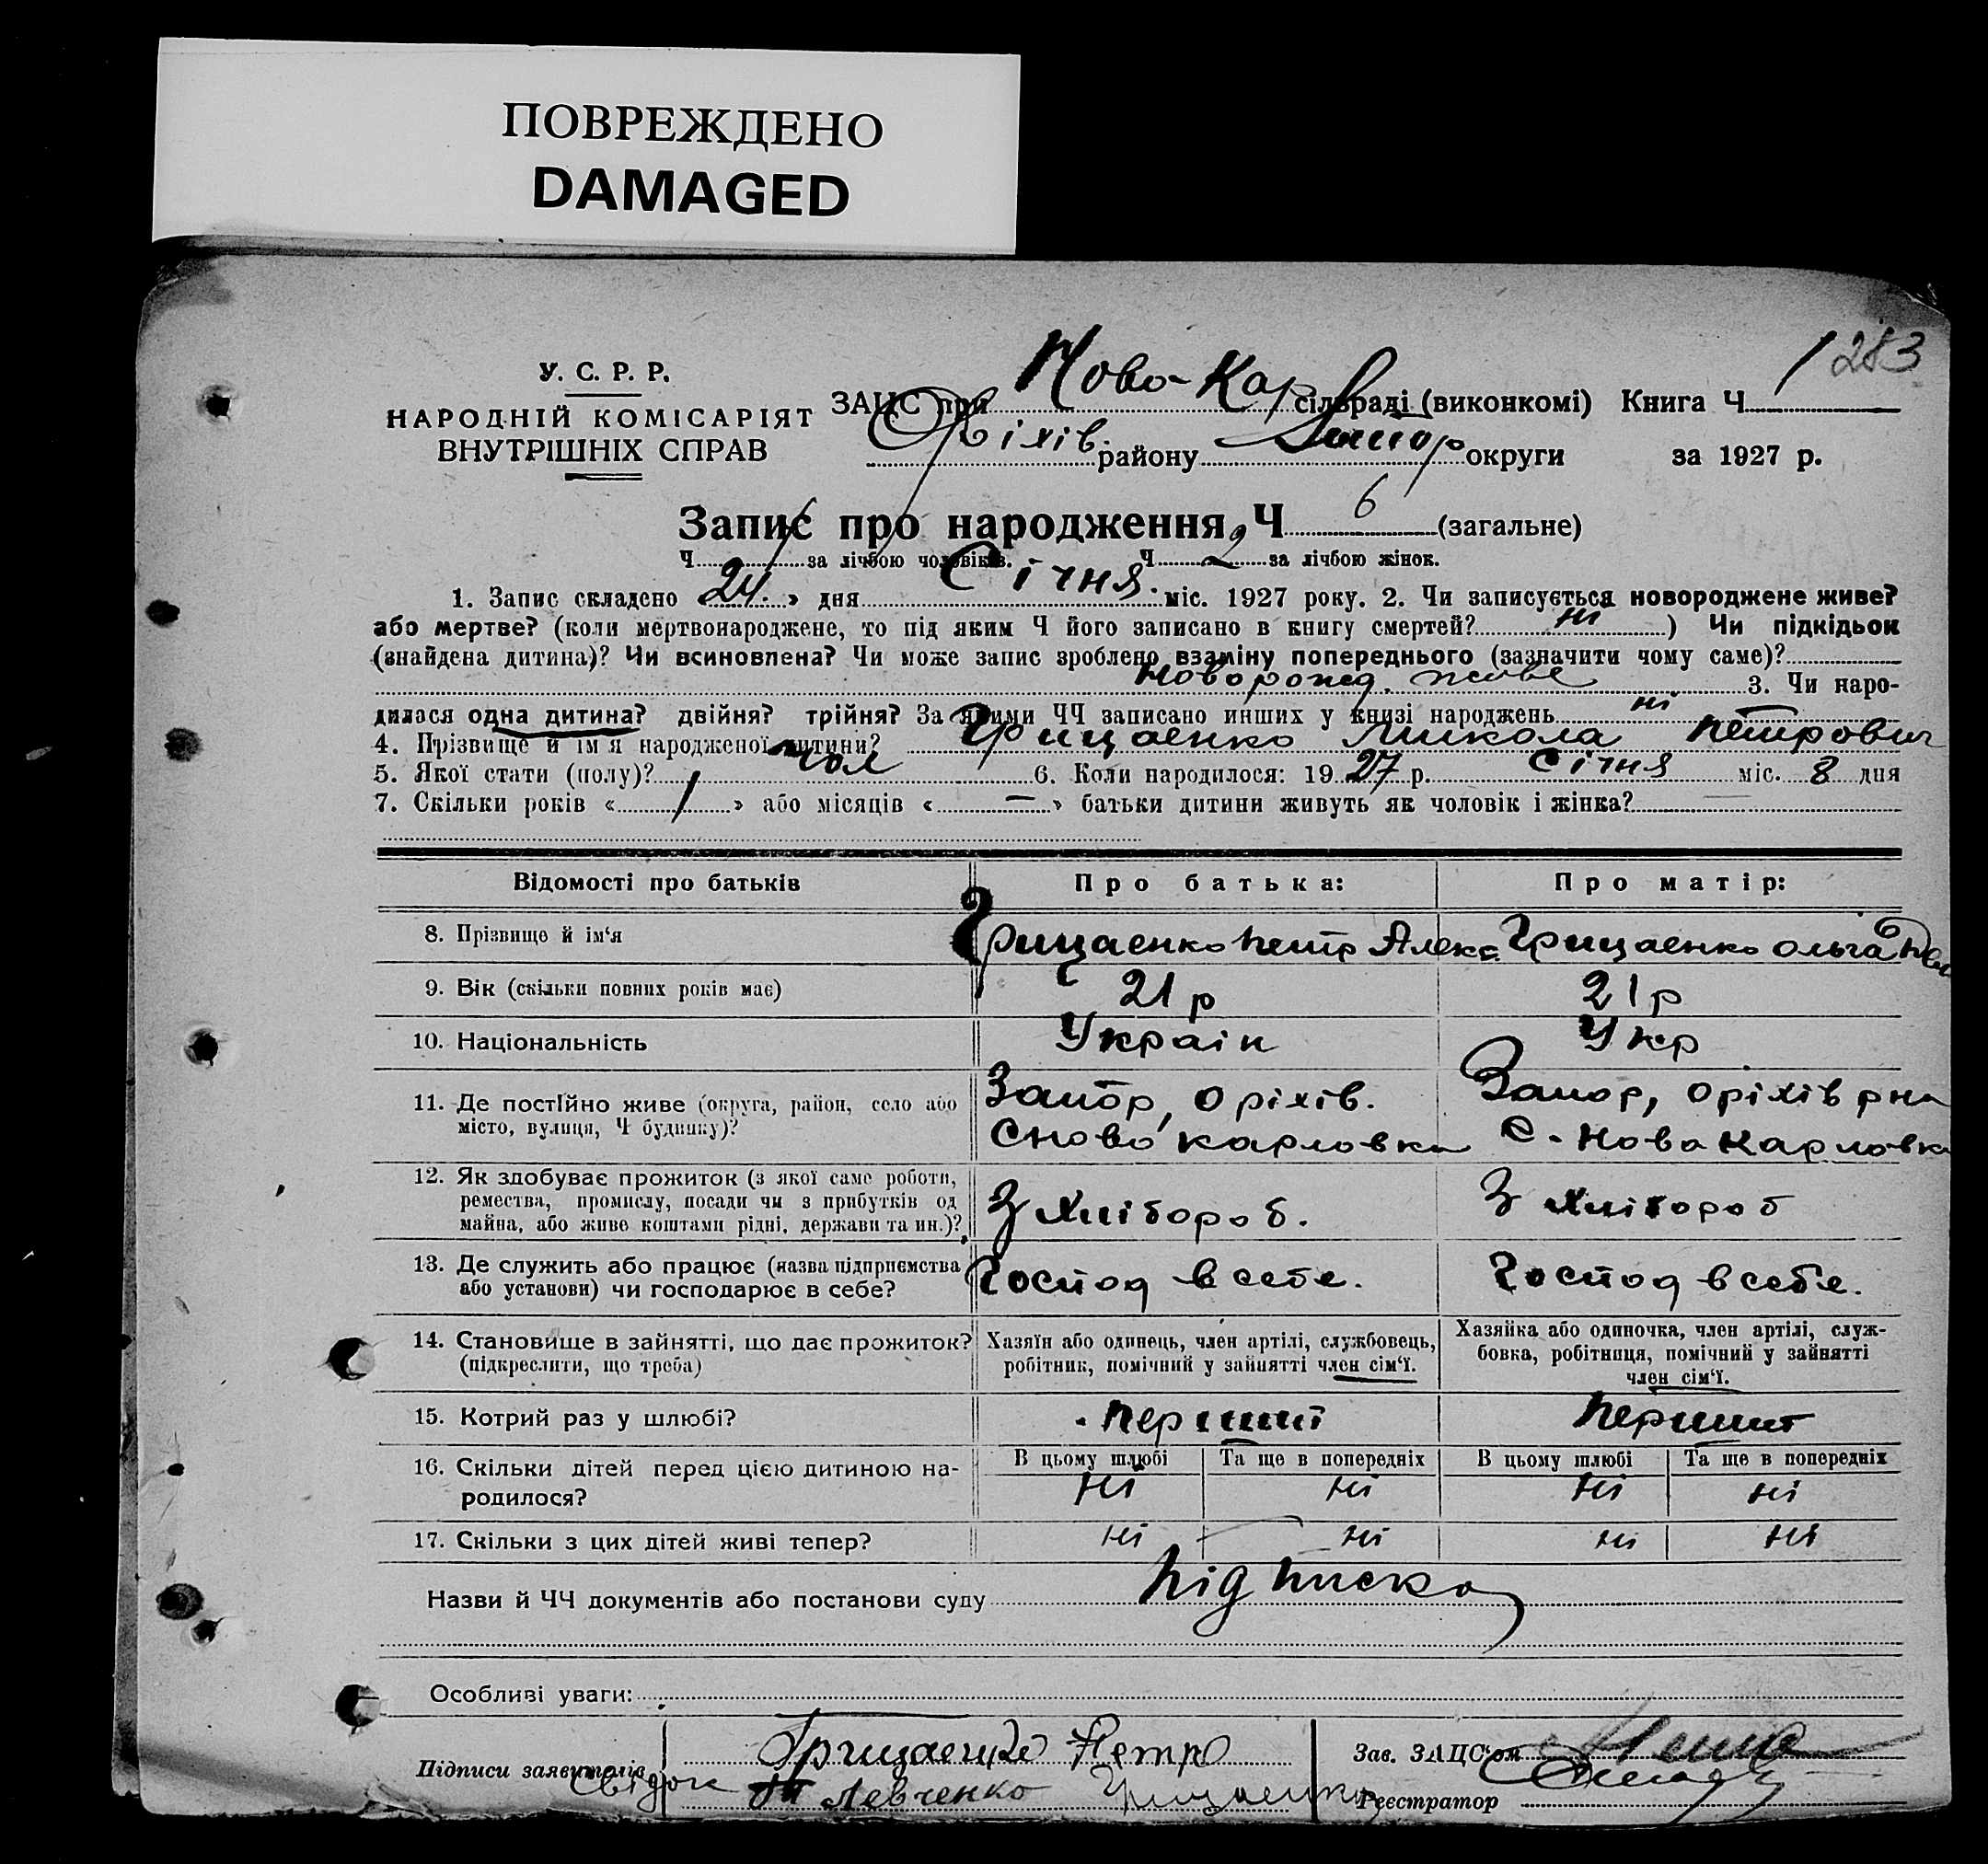 ПОВРЕЖДЕНО
DAMAGED
283
У. С. Р. Р.
НАРОДНІЙ КОМІСАРІЯТ
ВНУТРІШНІХ СПРАВ
ЗАЦС при Ново-Кар сільраді (виконкомі) Книга Ч 1
Оріхів. району Запор округи за 1927 р.
Запис про народження, Ч 6 (загальне)
Ч за лічбою чоловіків. Ч 2 за лічбою жінок.
1. Запис складено « 24. » дня Січня. міс. 1927 року. 2. Чи записується новороджене живе?
або мертве? (коли мертвонароджене, то під яким Ч його записано в книгу смертей? ні ) Чи підкідьок
(знайдена дитина)? Чи всиновлена? Чи може запис зроблено взаміну попереднього (зазначити чому саме)?
Новорожед. живе 3. Чи наро-
дилася одна дитина? двійня? трійня? За якими ЧЧ записано инших у книзі народжень ні
4. Прізвище й ім'я народженої дитини? Грицаенко Микола Петрович
5. Якої стати (полу)? чол 6. Коли народилося: 19 27 р. Січня міс. 8 дня
7. Скільки років « 1 » або місяців « — » батьки дитини живуть як чоловік і жінка? —
Відомості про батьків Про батька: Про матір:
8. Прізвище й ім'я Грицаенко Петр Алекс Грицаенко Ольга
9. Вік (скільки повних років має) 21 р 21 р
10. Національність Украін Укр
11. Де постійно живе (округа, район, село або Запор, Оріхів. Запор, Оріхів рна
місто, вулиця, Ч будинку)? С Ново Карловка С. Ново Карловка
12. Як здобуває прожиток (з якої саме роботи,
ремества, промислу, посади чи з прибутків од З хлібороб. З хлібороб
майна, або живе коштами рідні, держави та ин.)?
13. Де служить або працює (назва підприємства Господ в себе. Господ в себе.
або установи) чи господарює в себе?
14. Становище в зайнятті, що дає прожиток? Хазяїн або одинець, член артілі, службовець, Хазяйка або одиночка, член артілі, служ-
(підкреслити, що треба) робітник, помічний у зайнятті член сім'ї. бовка, робітниця, помічний у зайнятті
член сім'ї.
15. Котрий раз у шлюбі? Перший Перший
16. Скільки дітей перед цією дитиною на- В цьому шлюбі Та ще в попередніх В цьому шлюбі Та ще в попередніх
родилося? ні ні ні ні
17. Скільки з цих дітей живі тепер? ні ні ні ні
Назви й ЧЧ документів або постанови суду Підписка
Особливі уваги:
Підписи заявителів Грицаенко Петро Зав. ЗАЦС'ом
Свідок Левченко Грицаенко Реєстратор